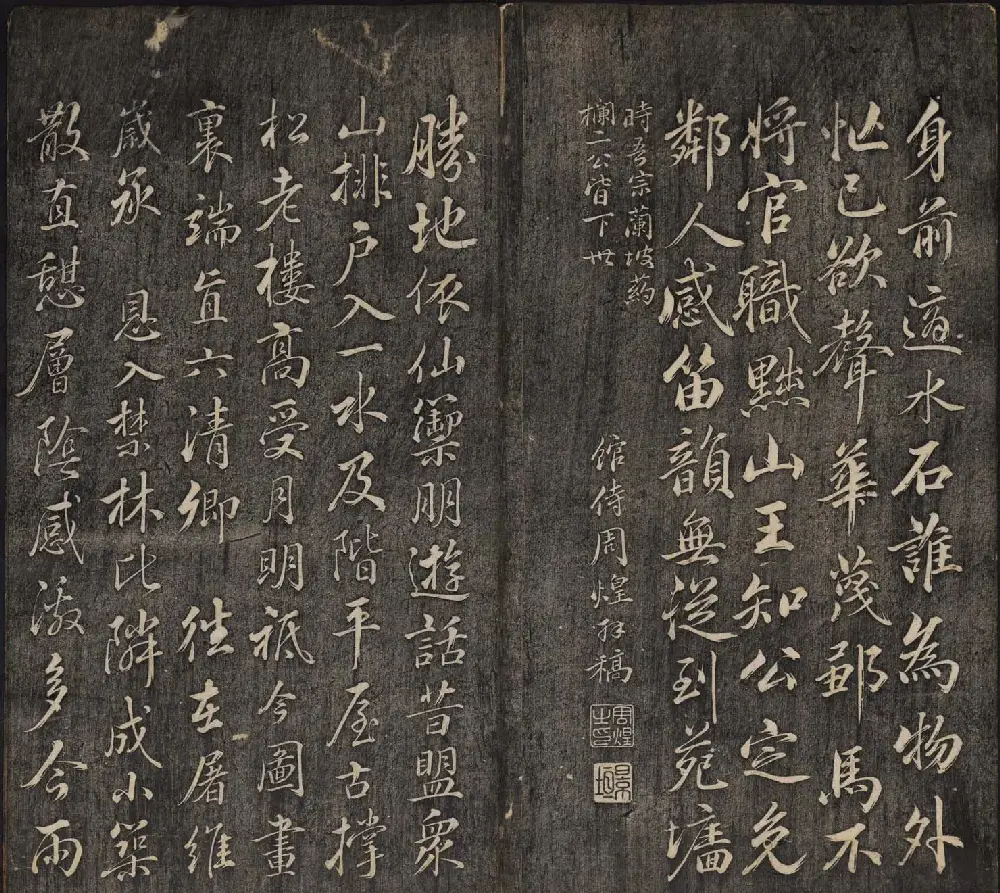 身前適水石誰為物外
忙已欲聲華蔑鄒馬不
將官職點山王知公定免
鄰人感笛韻無從到苑墻
時吾宗蘭坡葯
欄二公皆下世
館侍周煌拜稿
周煌之印
景垣
勝地依仙籞朋遊話昔盟眾
山排戶入一水及階平屋古撐
松老樓高受月明祗今圖畫
裏端直六清卿 往在屠維
歲承 恩入禁林比隣成小築
散直憩層陰感激多今雨